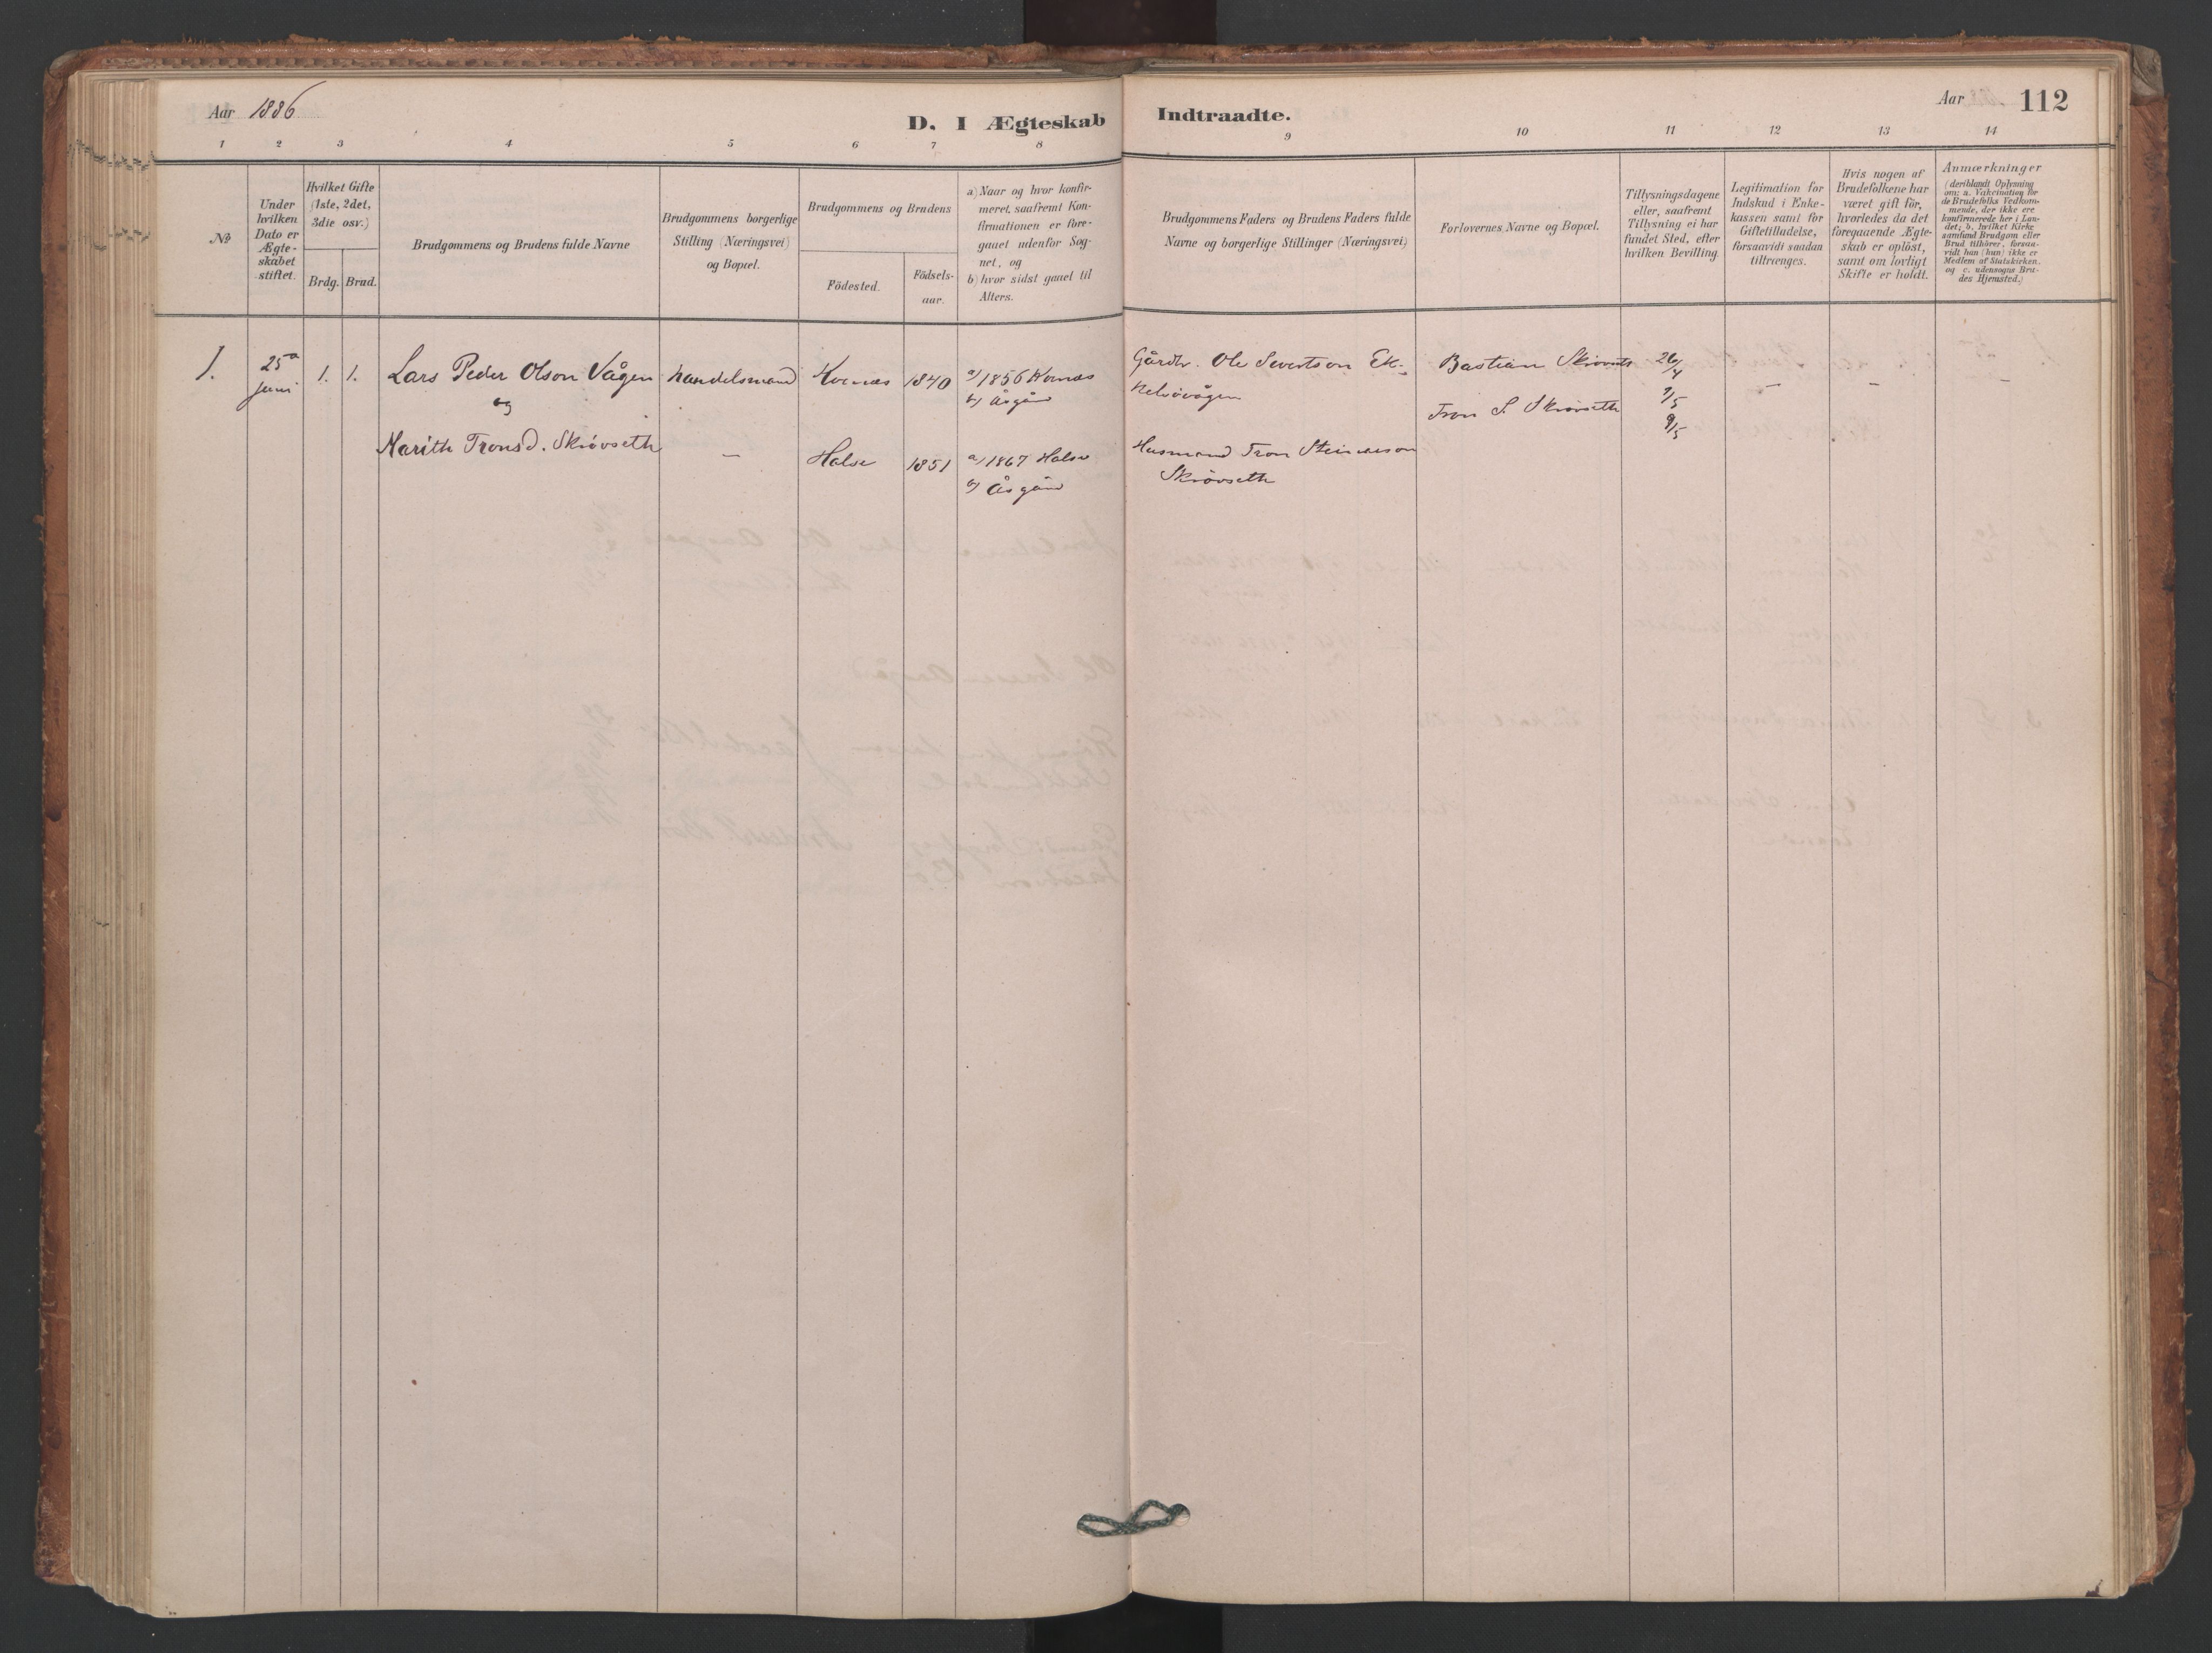 Aar 1886
D. I Ægteskab Indtraadte.
Aar 112
1 2 3 4 5 6 7 8 9 10 11 12 13 14
No
Under
hvilken
Dato er
Ægte-
skabet
stiftet.
Hvilket Gifte
(1ste, 2det,
3die osv.)
Brdg. Brud.
Brudgommens og Brudens fulde Navne
Brudgommens borgerlige
Stilling (Næringsvei)
og Bopæl.
Brudgommens og Brudens
Födested.
Födsels-
aar.
a) Naar og hvor konfir-
meret, saafremt Kon-
firmationen er fore-
gaaet udenfor Sog-
net, og
b) hvor sidst gaaet til
Alters.
Brudgommens Faders og Brudens Faders fulde
Navne og borgerlige Stillinger (Næringsvei)
Forlovernes Navne og Bopæl.
Tillysningsdagene
eller, saafremt
Tillysning ei har
fundet Sted, efter
hvilken Bevilling.
Legitimation for
Indskud i Enke-
kassen samt for
Giftetilladelse,
forsaavidt saadan
tiltrænges.
Hvis nogen af
Brudefolkene har
været gift för,
hvorledes da det
foregaaende Ægte-
skab er oplöst,
samt om lovligt
Skifte er holdt.
Anmærkninger
(deriblandt Oplysning
om: a. Vakcination for
de Brudefolks Vedkom-
mende, der ikke ere
konfirmerede her i Lan-
det; b. hvilket Kirke-
samfund Brudgom eller
Brud tilhörer, forsaa-
vidt han (hun) ikke er
Medlem af Statskirken.
og c. udensogns Bru-
des Hjemsted.)
1. 25de 1. 1. Lars Peder Olson Vågen handelsmand Kvernæs 1840 a) 1856 Kvernæs
juni og b) Åsgård
Gårdbr. Ole Sivertson Ek-
kelsövågen
Bastian Skrövseth 26/4
Tron S. Skrövseth 2/5
9/5
– – –
Marith Tronsd. Skrövseth – Halse 1851 a) 1867 Halse
b) Åsgård
Husmand Tron Steinarson
Skrövseth